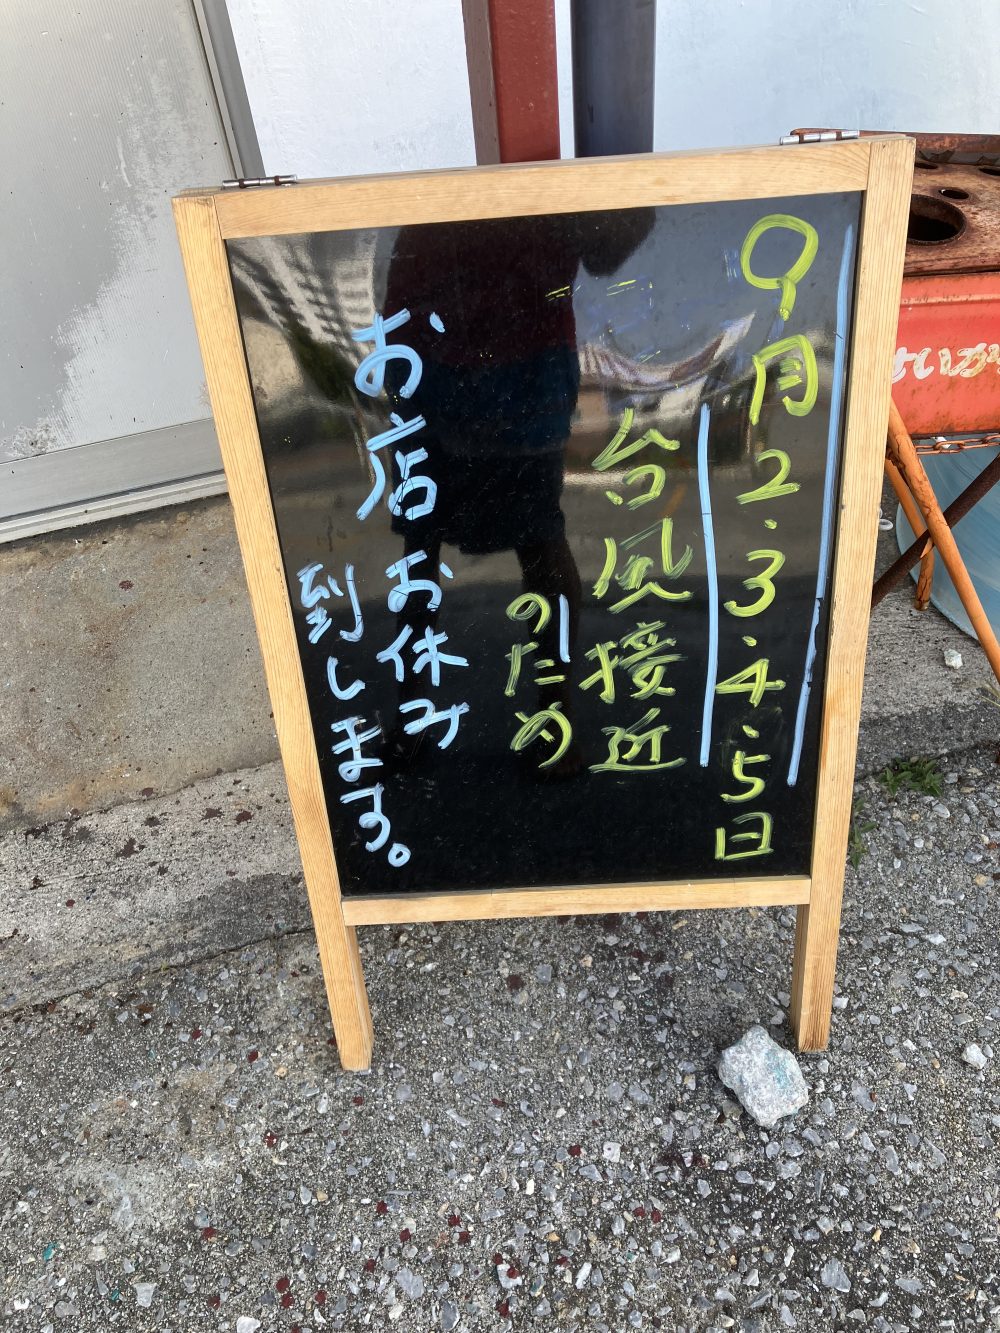 9月2.3.4.5日
台風接近
のため
お店お休み
到します。
せいか